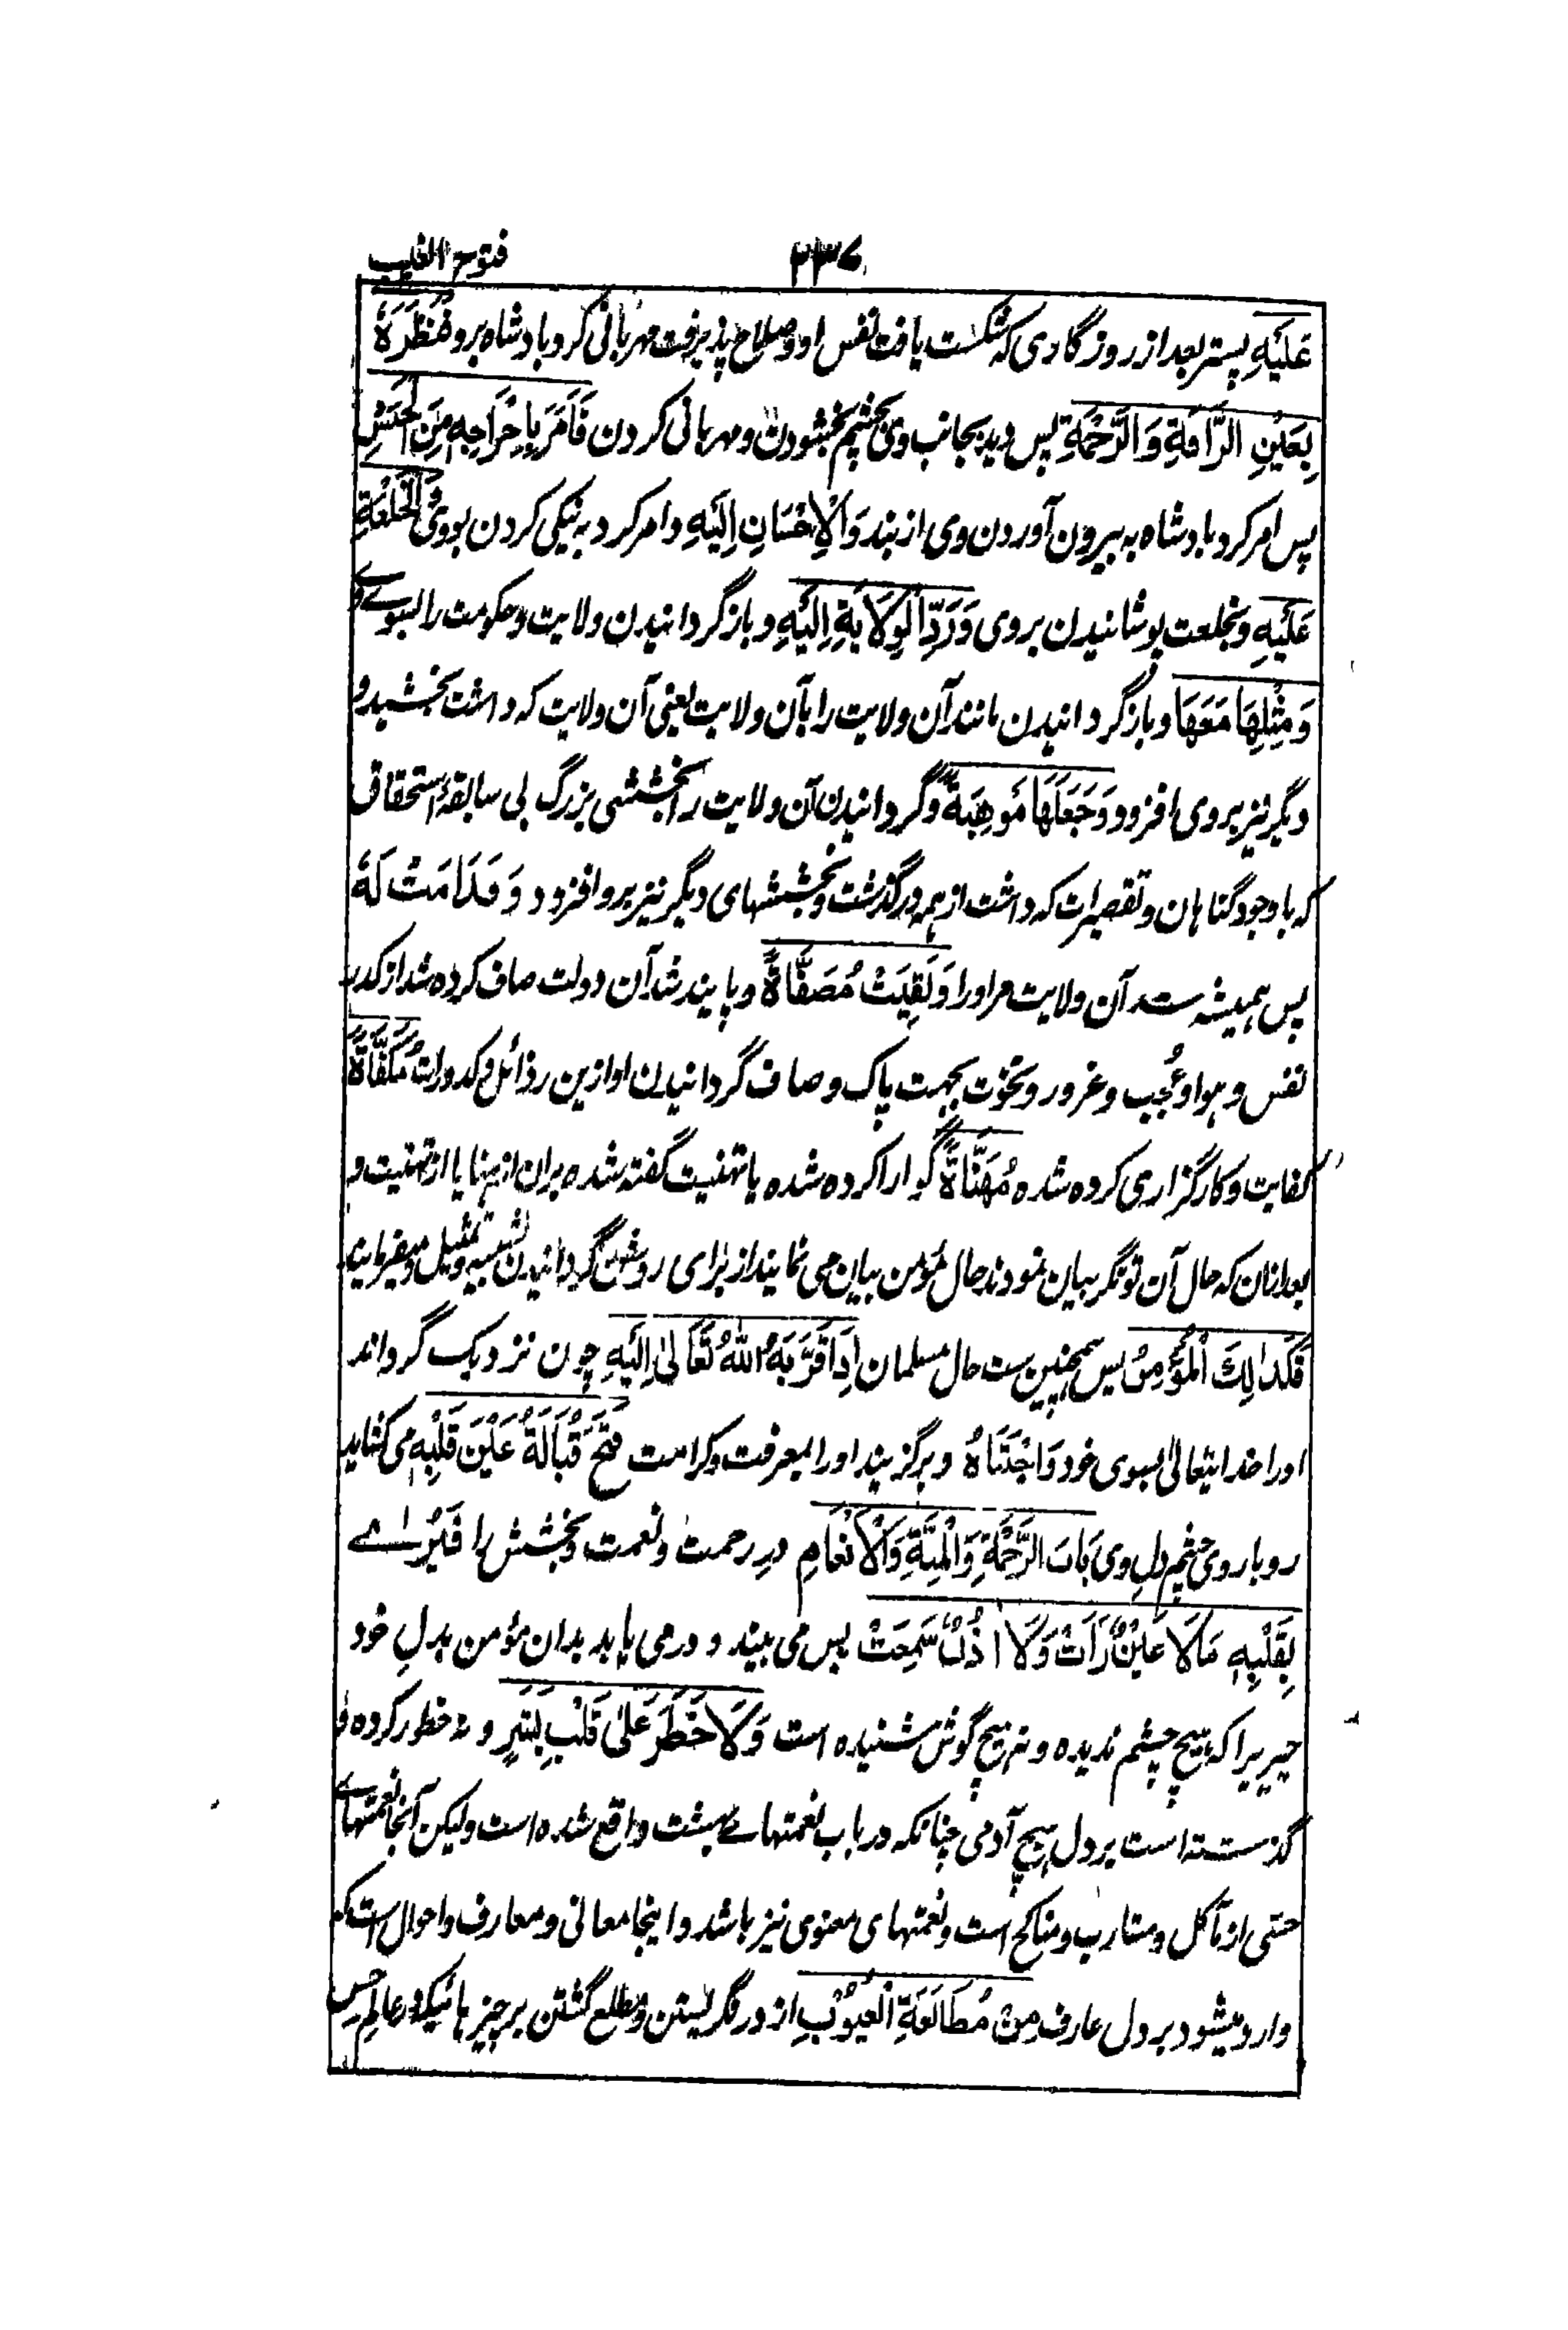 ۲۳۷ فتوح الغیب
عَلَیْهِ پستر بعد از روزگاری که شکست یافت نفس او و صلاح پذیرفت مهربانی کرد بادشاه برو فَنَظَرَهٗ
بِعَیْنِ الرَّافَةِ وَالرَّحْمَةِ پس دید بجانب وی بچشم بخشودن و مهربانی کردن فَاَمَرَ بِاِخْرَاجِهٖ مِنَ الْحَبْسِ
پس امر کرد بادشاه به بیرون آوردن وی از بند وَالْاِحْسَانِ اِلَیْهِ و امر کرد به نیکی کردن بوی وَالْخَلْعَةِ
عَلَیْهِ و بخلعت پوشانیدن بروی وَرَدِّ الْوِلَایَةِ اِلَیْهِ و بازگردانیدن ولایت و حکومت را بسوے وے
وَمِثْلِهَا مَعَهَا و بازگردانیدن مانند آن ولایت را بآن ولایت یعنی آن ولایت که داشت بخشید و
دیگر نیز بروی افزود وَجَعَلَهَا مَوْهِبَةً و گردانیدن آن ولایت را بخششی بزرگ بی سابقهٔ استحقاق
که با وجود گناهان و تقصیرات که داشت از همه درگذشت و بخششهای دیگر نیز برو افزود وَ فَدَامَتْ لَهٗ
پس همیشه شد آن ولایت مر او را وَبَقِیَتْ مُصَفَّاةً و پایند شد آن دولت صاف کرده شد از کدر
نفس و هوا و عُجب و غرور و نخوت بجهت پاک و صاف گردانیدن او ازین رذائل و کدورات مُکَفَّاةً
کفایت و کارگزاری کرده شده مُهَنَّاةً گوارا کرده شده یا تهنیت گفته شده بران از هنا یا از تهنیت و
بعد ازان که حال آن تونگر بیان نمودند حال مؤمن بیان می نمایند از برای روشن گردانیدن تشبیه و تمثیل و میفرمایند
فَکَذٰلِكَ الْمُؤْمِنُ پس همچنین ست حال مسلمان اِذَا قَرَّبَهُ اللّٰهُ تَعَالٰی اِلَیْهِ چون نزدیک گرداند
او را خدایتعالیٰ بسوی خود وَاجْتَبَاهُ و برگزیند او را بمعرفت و کرامت فَتَحَ قُبَالَةَ عَیْنِ قَلْبِهٖ می کشاید
روباروی چشم دلِ وی بَابَ الرَّحْمَةِ وَالْمِنَّةِ وَالْاِنْعَامِ درِ رحمت و نعمت و بخشش را فَیَرٰے
بِقَلْبِهٖ مَا لَا عَیْنٌ رَاَتْ وَلَا اُذُنٌ سَمِعَتْ پس می بیند و درمی یابد بدان مؤمن بدلِ خود
چیزیرا که هیچ چشم ندیده و نه هیچ گوش شنیده است وَلَا خَطَرَ عَلٰی قَلْبِ بَشَرٍ و نه خطور کرده و
گذشته است بر دل هیچ آدمی چنانکه در باب نعمتهاے بهشت واقع شده است ولیکن آنجا نعمتهاے
حسّی از مآکل و مشارب و مناکح است و نعمتهای معنوی نیز باشد و اینجا معانی و معارف و احوال است که
وارد میشود بر دل عارف مِنْ مُطَالَعَةِ الْغُیُوْبِ از درنگریستن و مطلع گشتن بر چیزهائیکه در عالمِ حس